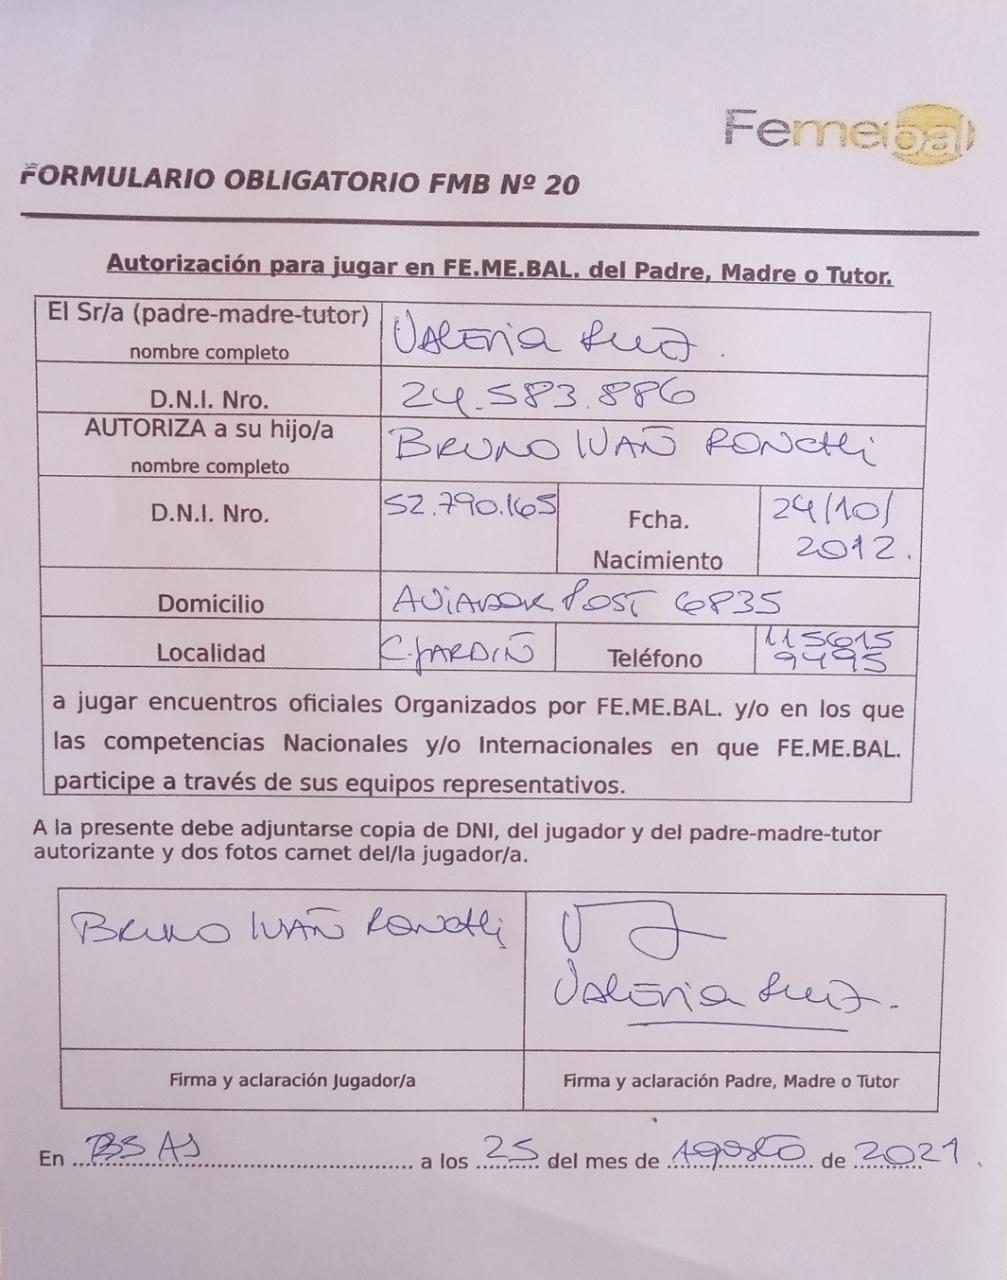 Femebal
FORMULARIO OBLIGATORIO FMB Nº 20
Autorización para jugar en FE.ME.BAL. del Padre, Madre o Tutor.
El Sr/a (padre-madre-tutor)
nombre completo
Valeria Ruiz.
D.N.I. Nro.
24.583.886
AUTORIZA a su hijo/a
nombre completo
BRUNO IVAÑ RONCHI
D.N.I. Nro.
52.790.165
Fcha.
Nacimiento
24/10/
2012.
Domicilio
AVIADOR POST 6835
Localidad
C. JARDIÑ
Teléfono
115615
9495
a jugar encuentros oficiales Organizados por FE.ME.BAL. y/o en los que
las competencias Nacionales y/o Internacionales en que FE.ME.BAL.
participe a través de sus equipos representativos.
A la presente debe adjuntarse copia de DNI, del jugador y del padre-madre-tutor
autorizante y dos fotos carnet del/la jugador/a.
BRUNO IVAÑ RONCHI
Valeria Ruiz.
Firma y aclaración Jugador/a
Firma y aclaración Padre, Madre o Tutor
En BS AS a los 25 del mes de Agosto de 2021.